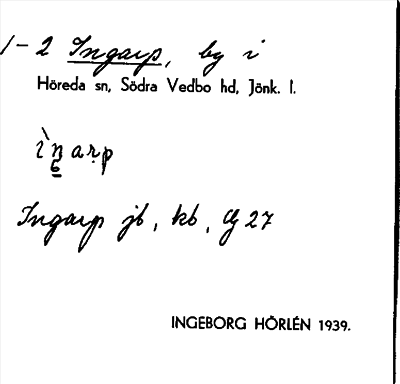 1-2 Ingarp, by i
Höreda sn, Södra Vedbo hd, Jönk. l.
Ingarp jb, kb, G 27
INGEBORG HÖRLÉN 1939.